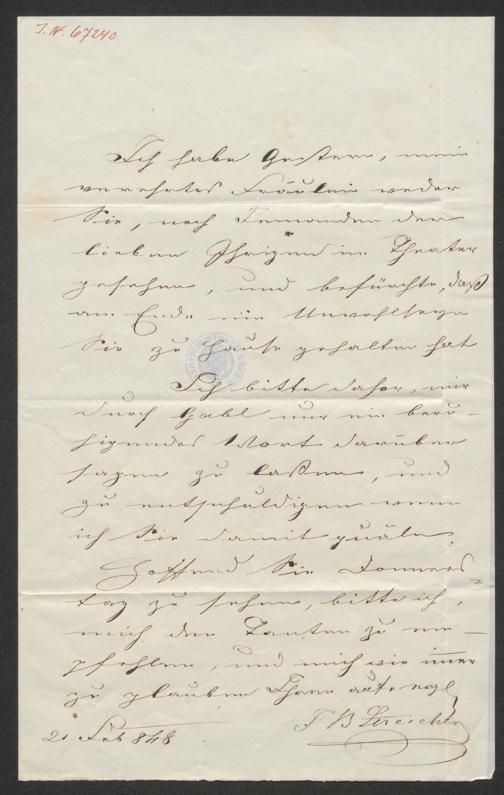 I. N. 67240
Ich habe Gestern, mein
verehrtes Fräulein weder
Sie, noch Jemanden der
lieben Ihrigen im Theater
gesehen, und befürchte, daß
am Ende ein Unwohlseyn
Sie zu Hause gehalten hat
Ich bitte daher, mir
durch Gabl nur ein beru-
higendes Wort darüber
sagen zu laßen, und
zu entschuldigen wenn
ich Sie damit quäle.
Hoffend Sie Donners-
tag zu sehen, bitte ich,
mich den Tanten zu em-
pfehlen, und mich wie immer
zu glauben Ihren
J B Streicher
21 Feb 848